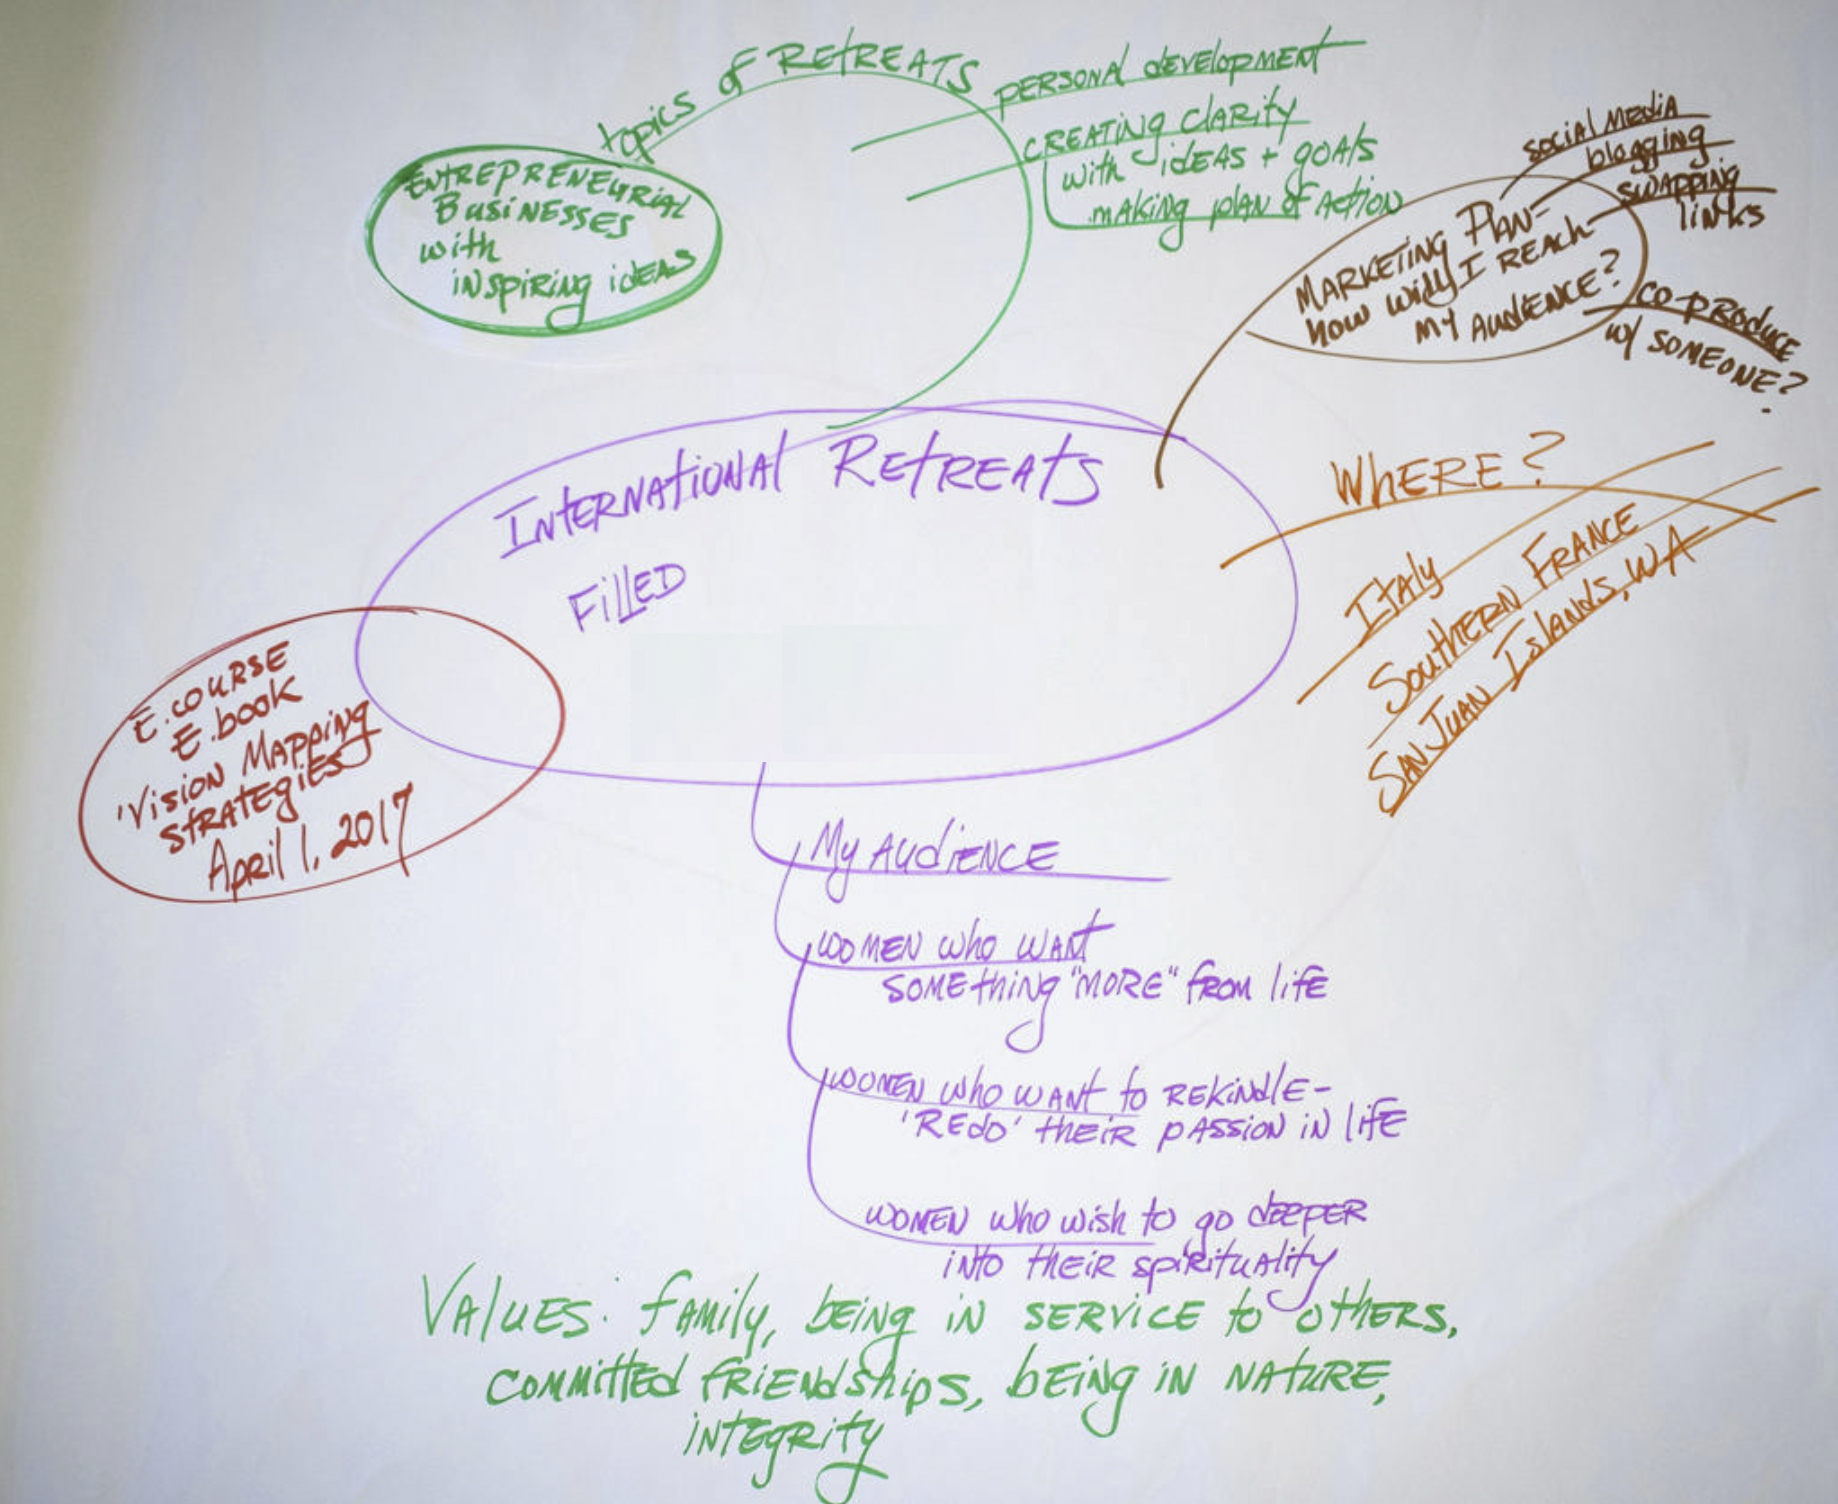 topics of RETREATS
ENTREPRENEURIAL
BUSINESSES
with
inspiring idEAS
PERSONAL dEVElopMENT
CREATING clARity
with idEAS + goAls
MAKING plAN of ACTION
MARKETING PlAN-
how will I REACH
MY AUDIENCE?
SOCIAL MEDIA
blogging
SWAPPING
liNKS
CO-PRODUCE
w/ SOMEONE?
INTERNATIONAL RETREATS
FillED
WhERE?
ITAly
SouthERN FRANCE
SAN JUAN IslANds, WA
E.COURSE
E.book
'VisioN MAPPiNg
STRATEgiES
April 1, 2017
My AUdiENCE
WOMEN who WANT
SOMEthing "MORE" fROM lifE
WOMEN who WANT to REKiNdlE-
'REdO' thEiR pASSiON iN lifE
WOMEN who wish to go dEEPER
iNTO thEiR spiRituAlity
VAluES: fAMily, bEiNg iN SERViCE to othERS,
COMMittEd fRiENdships, bEiNg iN NATURE,
iNTEgRity